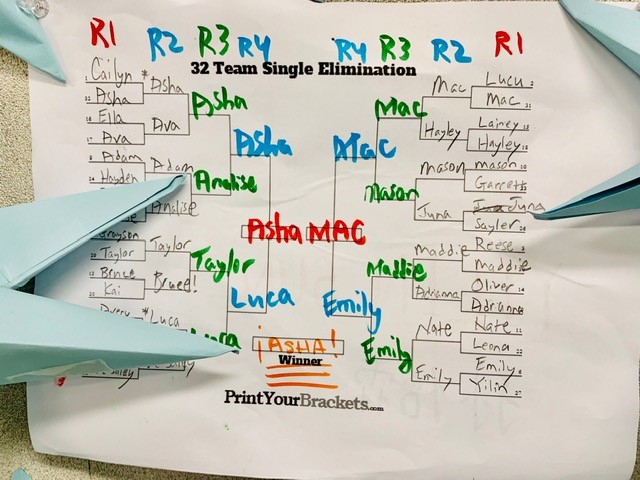 R1 R2 R3 R4 R4 R3 R2 R1
32 Team Single Elimination
Cailyn
Asha
Ella
Ava
Adam
Hayden
Taylor
Bruce
Kai
*Asha
Ava
Adam
Analise
Taylor
Bruce!
*Luca
Asha
Analise
Taylor
Asha
Luca
Asha MAC
¡ASHA!
Winner
Mac
Emily
Mac
Mason
Maddie
Emily
Mac
Hayley
Mason
Juna
Maddie
Adrianna
Nate
Emily
Lucu
Mac
Lainey
Hayley
mason
Garrett
Juna
Sayler
Reese
Maddie
Oliver
Adrianna
Nate
Leona
Emily
Yilin
PrintYourBrackets.com